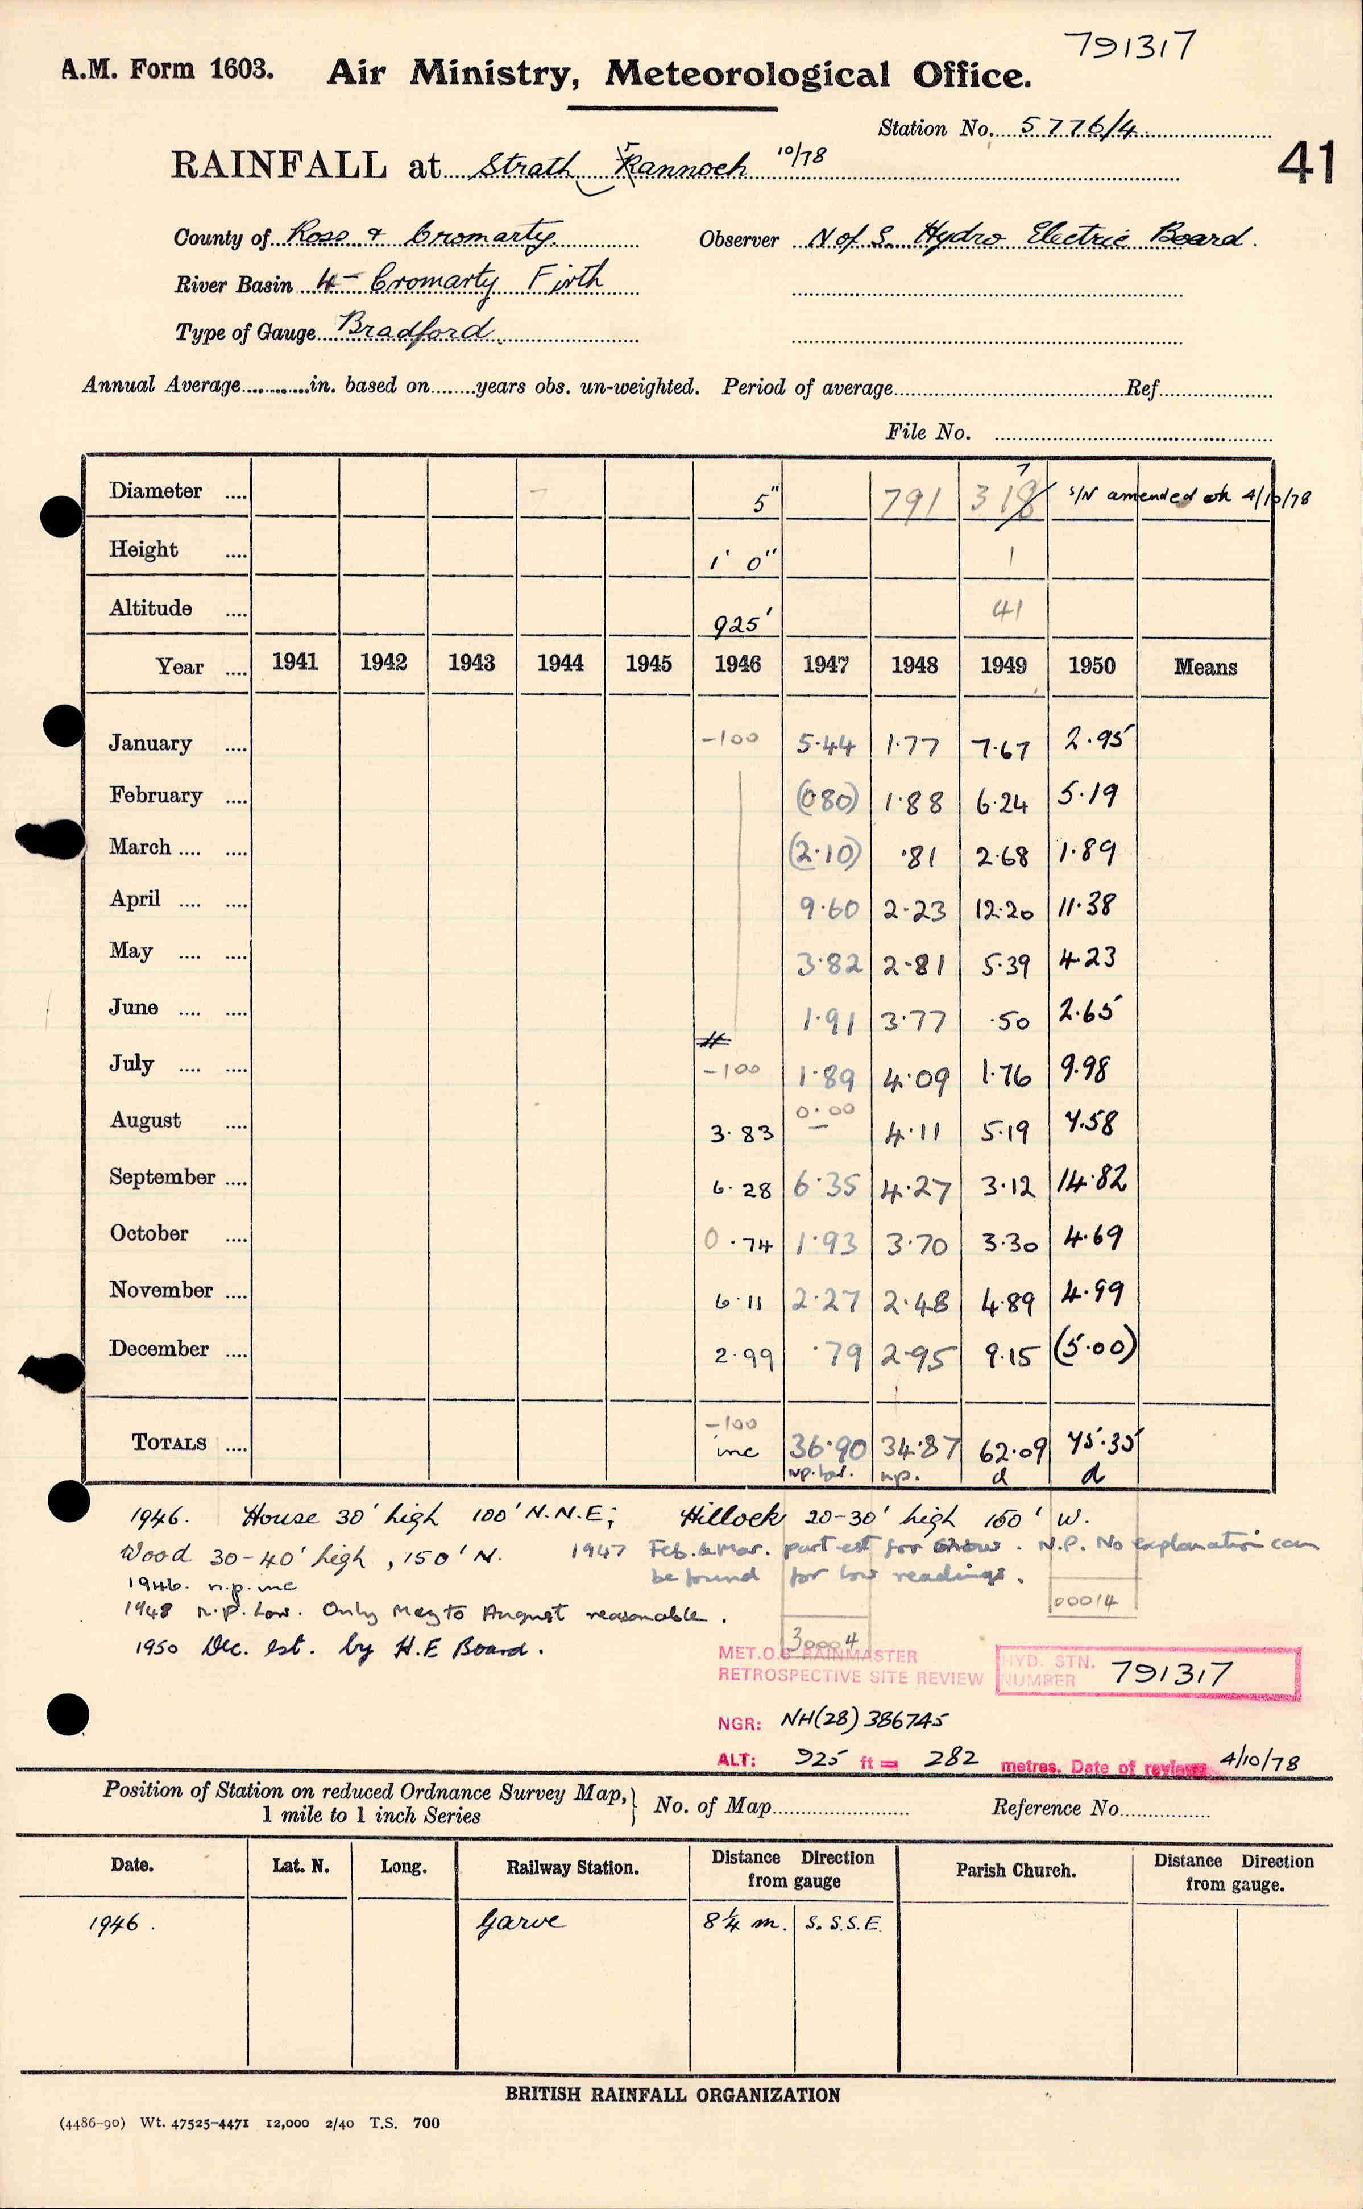 791317
A.M. Form 1603. Air Ministry, Meteorological Office.
Station No. 5776/4
41
RAINFALL at Strath Rannoch 10/78
County of Ross & Cromarty Observer N of S. Hydro Electric Board.
River Basin 4 - Cromarty Firth
Type of Gauge Bradford
Annual Average in. based on years obs. un-weighted. Period of average Ref
File No.
Diameter 5" 791 318 7 S/N amended 4/10/78
Height 1' 0" 1
Altitude 925' 41
Year 1941 1942 1943 1944 1945 1946 1947 1948 1949 1950 Means
January -100 5.44 1.77 7.67 2.95
February (080) 1.88 6.24 5.19
March (2.10) .81 2.68 1.89
April 9.60 2.23 12.20 11.38
May 3.82 2.81 5.39 4.23
June 1.91 3.77 .50 2.65
July -100 1.89 4.09 1.76 9.98
August 3.83 0.00 – 4.11 5.19 7.58
September 6.28 6.35 4.27 3.12 14.82
October 0.74 1.93 3.70 3.30 4.69
November 6.11 2.27 2.48 4.89 4.99
December 2.99 .79 2.95 9.15 (5.00)
-100
TOTALS inc 36.90 34.87 62.09 75.35
n.p. low. n.p. d d
1946. House 30' high 100' N.N.E; Hillock 20-30' high 160' W.
Wood 30-40' high, 150' N. 1947 Feb. & Mar. part est for snow. N.P. No explanation can
be found for low readings.
1946. n.p. inc
1948 n.p. Low. Only May to August reasonable.
00014
1950 Dec. est. by H.E Board.
30004
MET.O.8 RAINMASTER
RETROSPECTIVE SITE REVIEW
HYD. STN. NUMBER 791317
NGR: NH(28) 386745
ALT: 925 ft = 282 metres. Date of review 4/10/78
Position of Station on reduced Ordnance Survey Map, 1 mile to 1 inch Series } No. of Map Reference No.
Date. Lat. N. Long. Railway Station. Distance Direction from gauge Parish Church. Distance Direction from gauge.
1946. Garve 8¼ m. S. S.S.E.
BRITISH RAINFALL ORGANIZATION
(4486-90) Wt. 47525-4471 12,000 2/40 T.S. 700